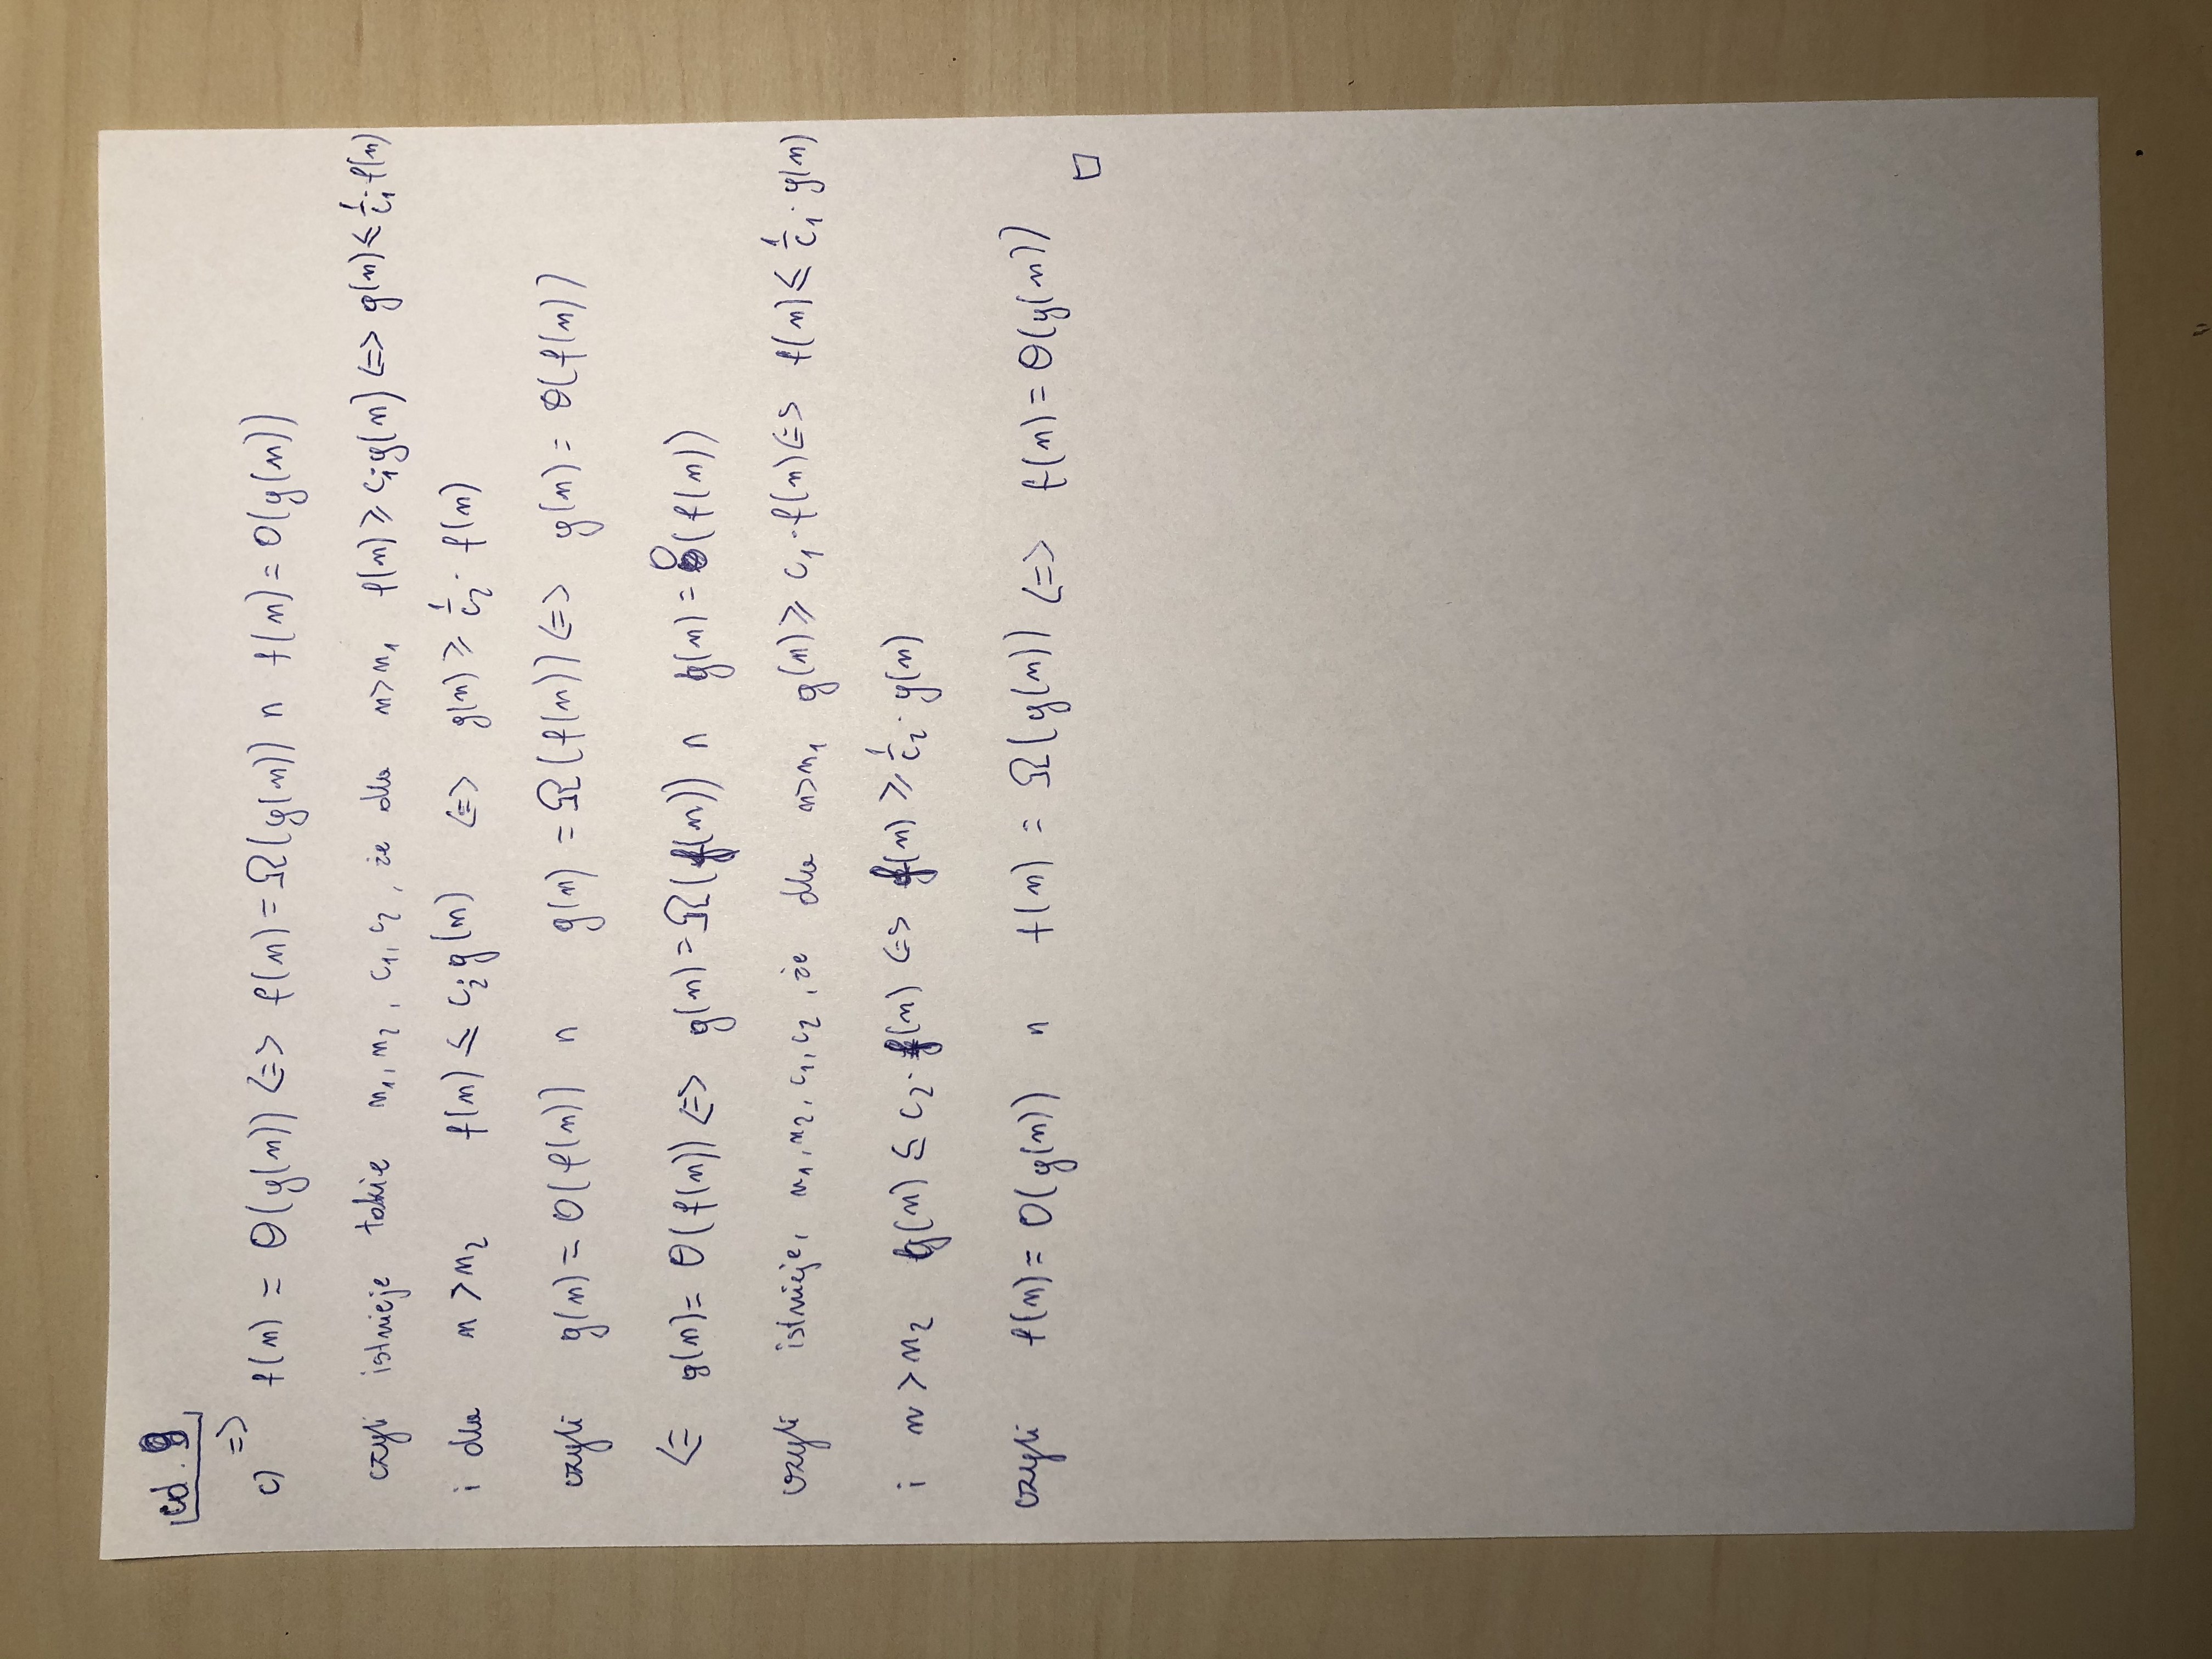 cd. 9
=>
c) f(n) = Θ(g(n)) <=> f(n) = Ω(g(n)) ∩ f(n) = O(g(n))
czyli istnieje takie n₁, n₂, c₁, c₂, że dla n>n₁ f(n) ≥ c₁·g(n) <=> g(n) ≤ 1/c₁ · f(n)
i dla n > n₂ f(n) ≤ c₂·g(n) <=> g(n) ≥ 1/c₂ · f(n)
czyli g(n) = O(f(n)) ∩ g(n) = Ω(f(n)) <=> g(n) = Θ(f(n))
<= g(n) = Θ(f(n)) <=> g(n) = Ω(f(n)) ∩ g(n) = O(f(n))
czyli istnieje, n₁, n₂, c₁, c₂, że dla n>n₁ g(n) ≥ c₁·f(n) <=> f(n) ≤ 1/c₁ · g(n)
i n > n₂ g(n) ≤ c₂·f(n) <=> f(n) ≥ 1/c₂ · g(n)
czyli f(n) = O(g(n)) ∩ f(n) = Ω(g(n)) <=> f(n) = Θ(g(n))
□